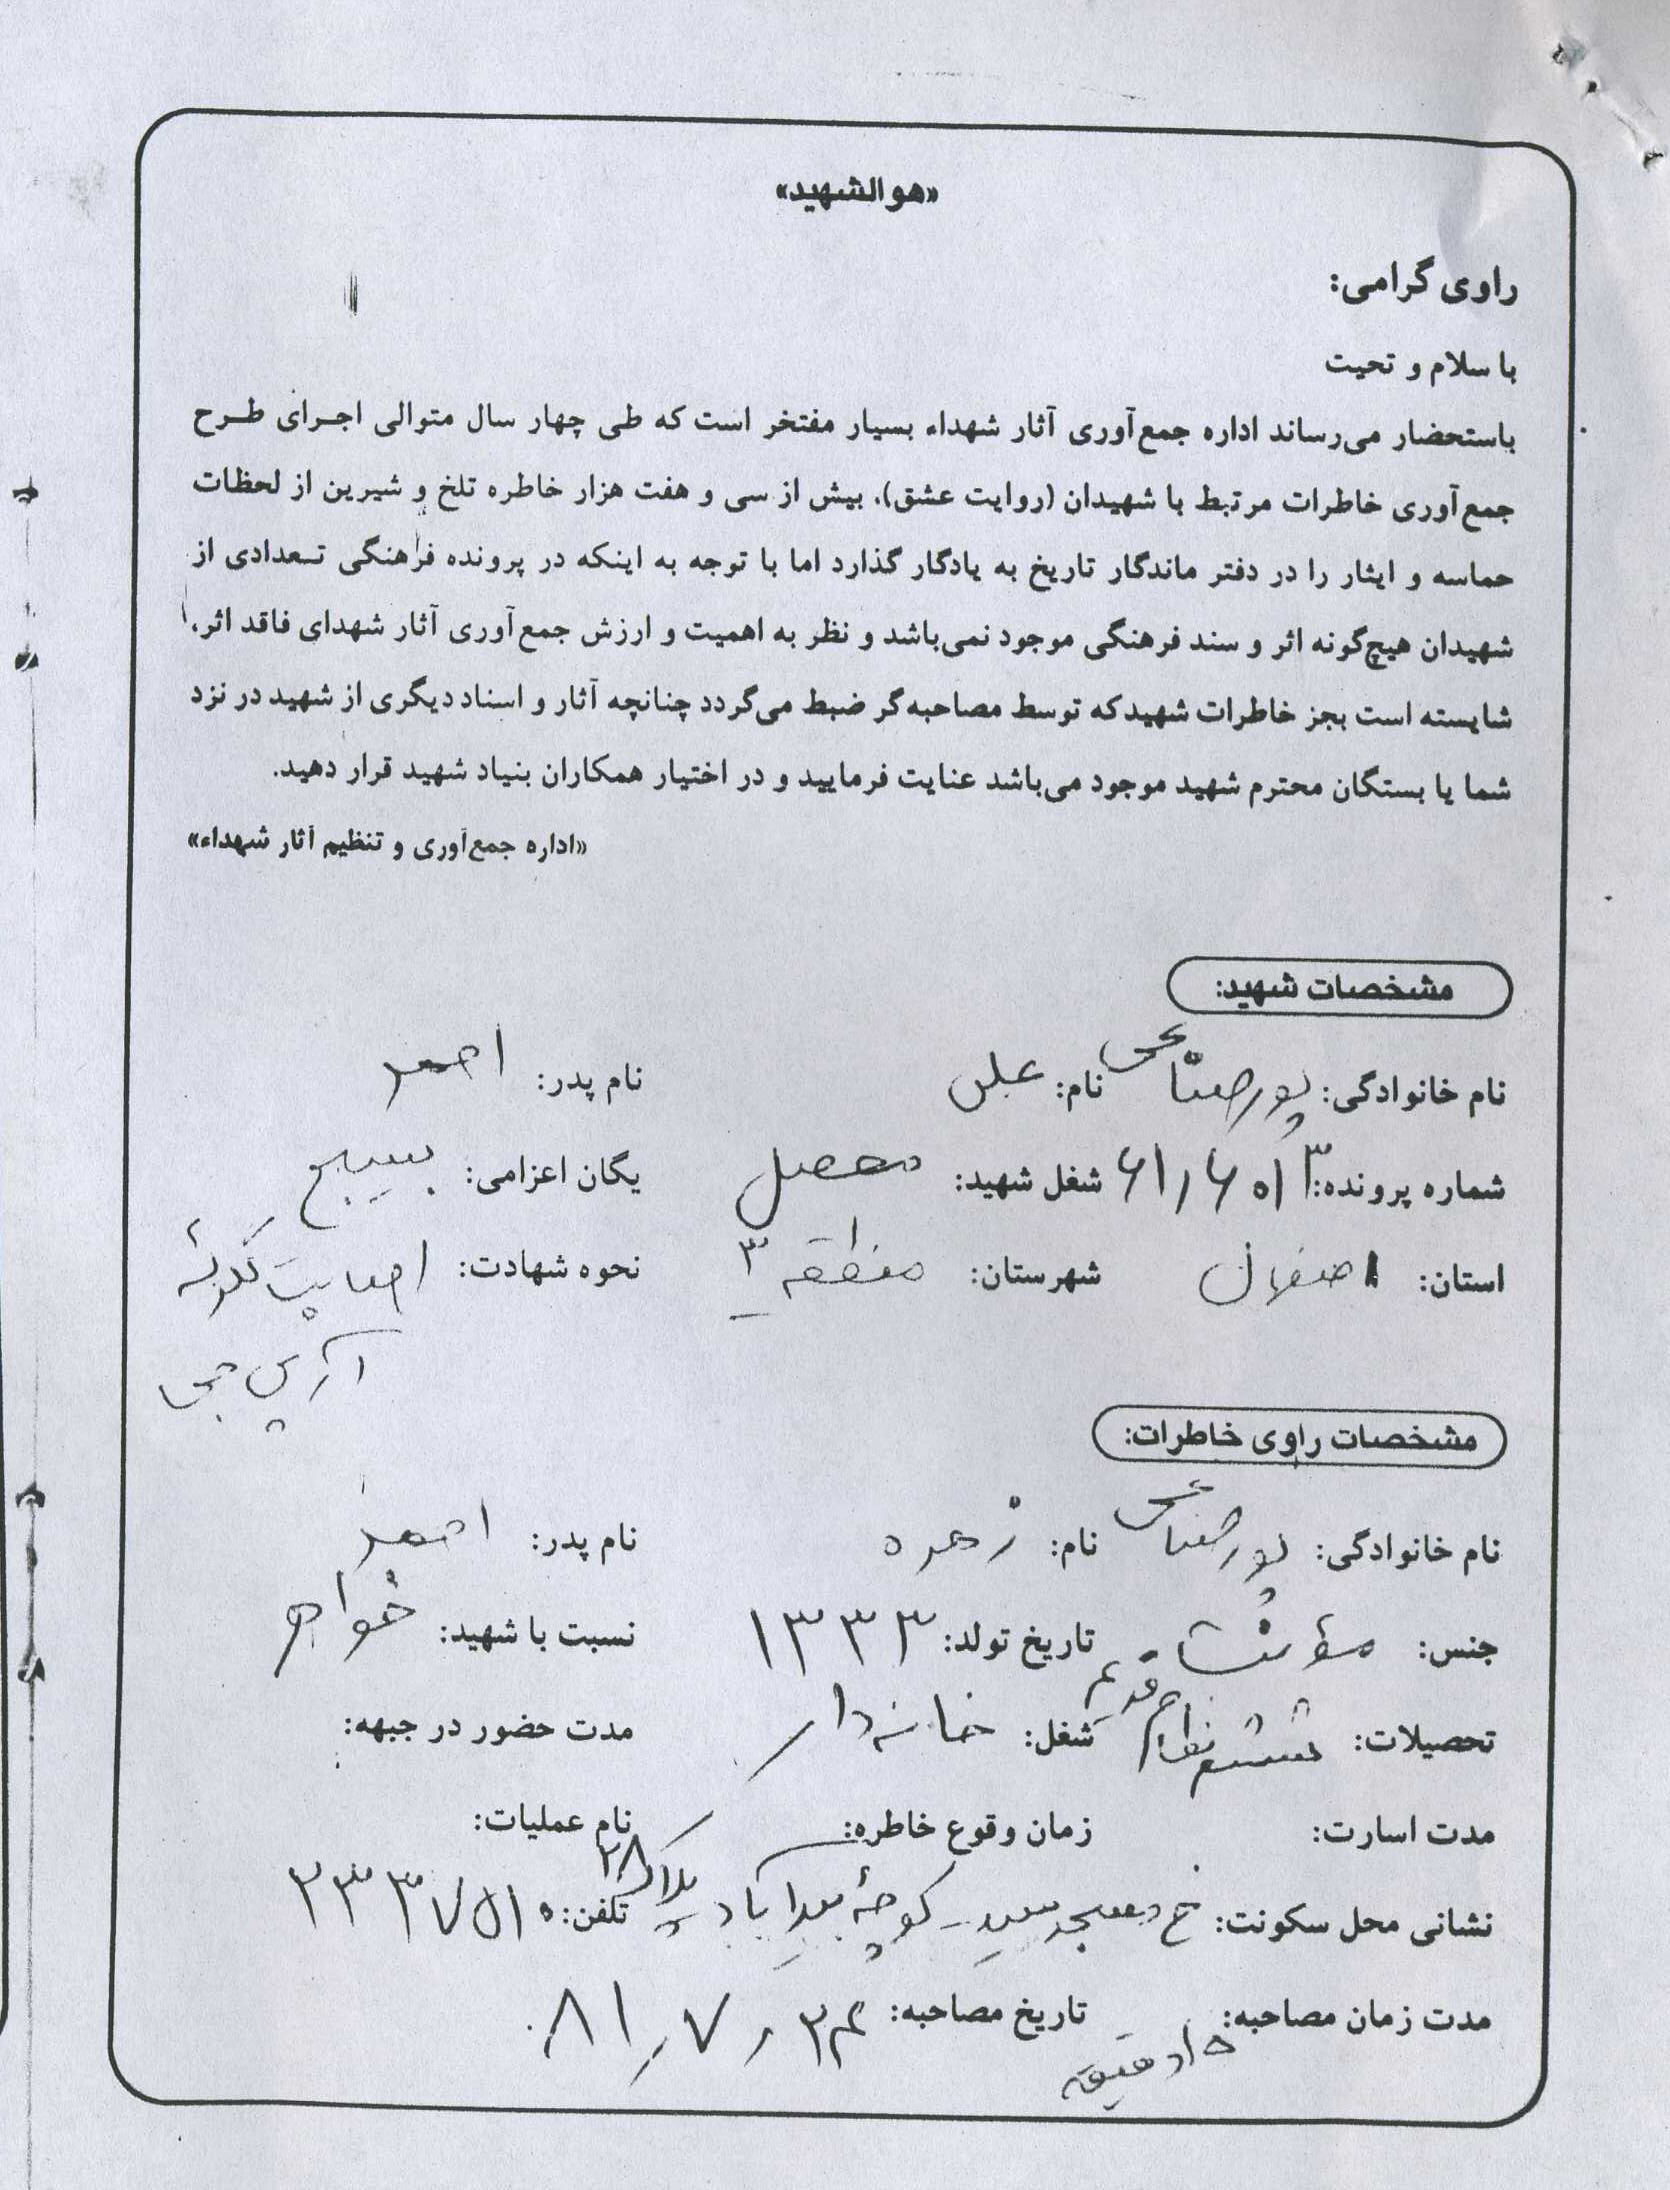 «هوالشهید»
راوی گرامی:
با سلام و تحیت
باستحضار می‌رساند اداره جمع‌آوری آثار شهداء بسیار مفتخر است که طی چهار سال متوالی اجرای طرح
جمع‌آوری خاطرات مرتبط با شهیدان (روایت عشق). بیش از سی و هفت هزار خاطره تلخ و شیرین از لحظات
حماسه و ایثار را در دفتر ماندگار تاریخ به یادگار گذارد اما با توجه به اینکه در پرونده فرهنگی تعدادی از
شهیدان هیچ‌گونه اثر و سند فرهنگی موجود نمی‌باشد و نظر به اهمیت و ارزش جمع‌آوری آثار شهدای فاقد اثر،
شایسته است بجز خاطرات شهید که توسط مصاحبه‌گر ضبط می‌گردد چنانچه آثار و اسناد دیگری از شهید در نزد
شما یا بستگان محترم شهید موجود می‌باشد عنایت فرمایید و در اختیار همکاران بنیاد شهید قرار دهید.
«اداره جمع‌آوری و تنظیم آثار شهداء»
مشخصات شهید:
نام خانوادگی: نام: علی نام پدر: احمد
شماره پرونده: شغل شهید: محصل یگان اعزامی: بسیج
استان: اصفهان شهرستان: منطقه ۳ نحوه شهادت: اصابت گلوله
آرپی جی
مشخصات راوی خاطرات:
نام خانوادگی: نام: زهره نام پدر: احمد
جنس: مؤنث تاریخ تولد: ۱۳۳۳ نسبت با شهید: خواهر
تحصیلات: ششم نظام قدیم شغل: خانه‌دار مدت حضور در جبهه:
مدت اسارت: زمان وقوع خاطره: نام عملیات:
نشانی محل سکونت: خ مسجد سید - کوچهٔ بیدآباد پلاک ۲۸ تلفن: ۲۳۳۷۵۱۵
مدت زمان مصاحبه: ۱۵ دقیقه تاریخ مصاحبه: ۸۱٫۷٫۲۴